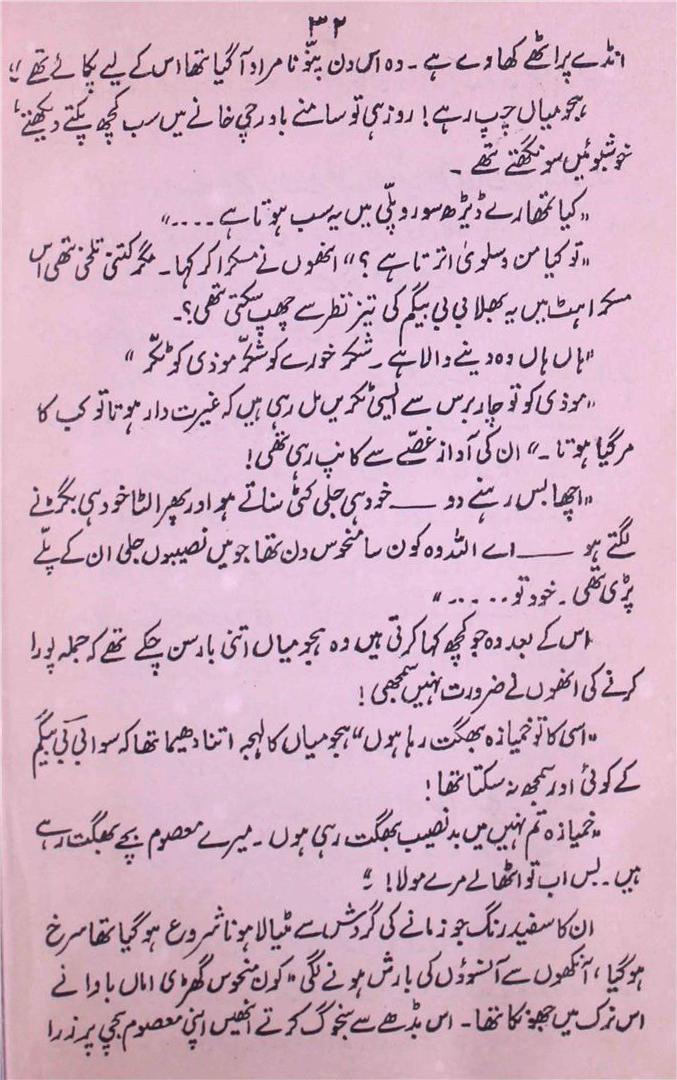 ۳۲
انڈے پراٹھے کھاوے ہے۔ وہ اس دن بنّو نامراد آگیا تھا اس کے لیے پکائے تھے"
ہجو میاں چپ رہے! روز ہی تو سامنے باورچی خانے میں سب کچھ پکتے دیکھتے
خوشبوئیں سونگھتے تھے ۔
"کیا تمھارے ڈیڑھ سو روپلّی میں یہ سب ہوتا ہے ...."
"تو کیا من و سلویٰ اترتا ہے ؟" انھوں نے مسکرا کر کہا۔ مگر کتنی تلخی تھی اس
مسکراہٹ میں یہ بھلا بی بی بیگم کی تیز نظر سے چھپ سکتی تھی؟۔
"ہاں ہاں وہ دینے والا ہے ۔ شکر خورے کو شکّر موذی کو ٹکّر "
"موذی کو تو چار برس سے ایسی ٹکریں مل رہی ہیں کہ غیرت دار ہوتا تو کب کا
مر گیا ہوتا ۔" ان کی آواز غصّے سے کانپ رہی تھی!
"اچھا بس رہنے دو —— خود ہی جلی کٹی سناتے ہو اور پھر الٹا خود ہی بگڑنے
لگتے ہو —— اے اللہ وہ کون سا منحوس دن تھا جو میں نصیبوں جلی ان کے پلّے
پڑی تھی ۔ خود تو ...."
اس کے بعد وہ جو کچھ کہا کرتی ہیں وہ ہجو میاں اتنی بار سن چکے تھے کہ جملہ پورا
کرنے کی انھوں نے ضرورت نہیں سمجھی!
"اسی کا تو خمیازہ بھگت رہا ہوں" ہجو میاں کا لہجہ اتنا دھیما تھا کہ سوا بی بی بیگم
کے کوئی اور سمجھ نہ سکتا تھا!
"خمیازہ تم نہیں میں بدنصیب بھگت رہی ہوں ۔ میرے معصوم بچے بھگت رہے
ہیں ۔ بس اب تو اٹھالے مرے مولا! "
ان کا سفید رنگ جو زمانے کی گردش سے مٹیالا ہونا شروع ہو گیا تھا سرخ
ہو گیا ، آنکھوں سے آنسوؤں کی بارش ہونے لگی "کون منحوس گھڑی اماں باوا نے
اس نرک میں جھونکا تھا ۔ اس بڈھے سے سنجوگ کرتے انھیں اپنی معصوم بچی پر ذرا